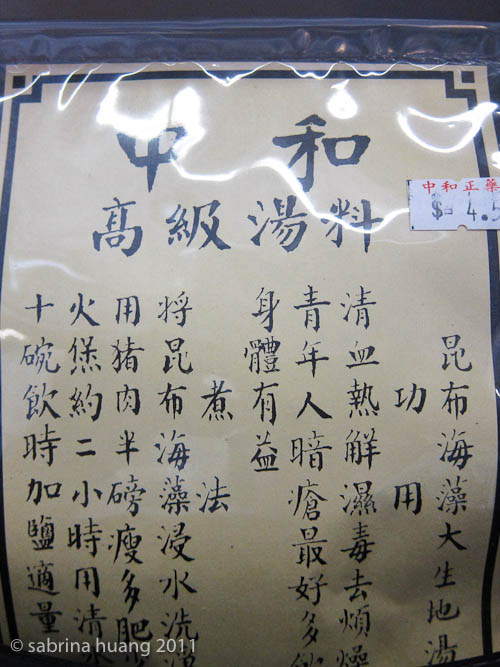 中和
高級湯料
中和正藥
$ 4.
昆布海藻大生地湯
功用
清血熱解濕毒去煩燥
青年人暗瘡最好多飲
身體有益
煮法
將昆布海藻浸水洗
用豬肉半磅瘦多肥
火煲約二小時用清
十碗飲時加鹽適量
© sabrina huang 2011